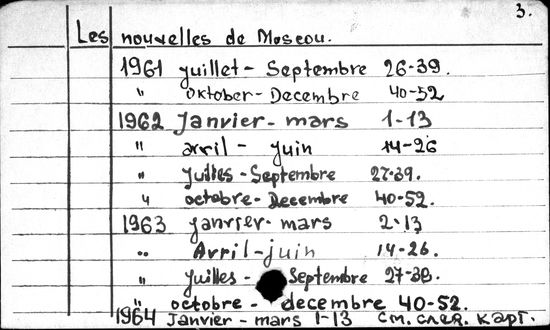 3.
Les nouvelles de Moscou.
1961 juillet - Septembre 26-39.
" oktober - Decembre 40-52
1962 Janvier - mars 1-13
" avril - juin 14-26
" Juilles - Septembre 27-39.
" octobre - Decembre 40-52.
1963 janvier - mars 2-13
" Avril - juin 14-26.
" juilles - Septembre 27-39.
" octobre - decembre 40-52.
1964 Janvier - mars 1-13 см. след. карт.